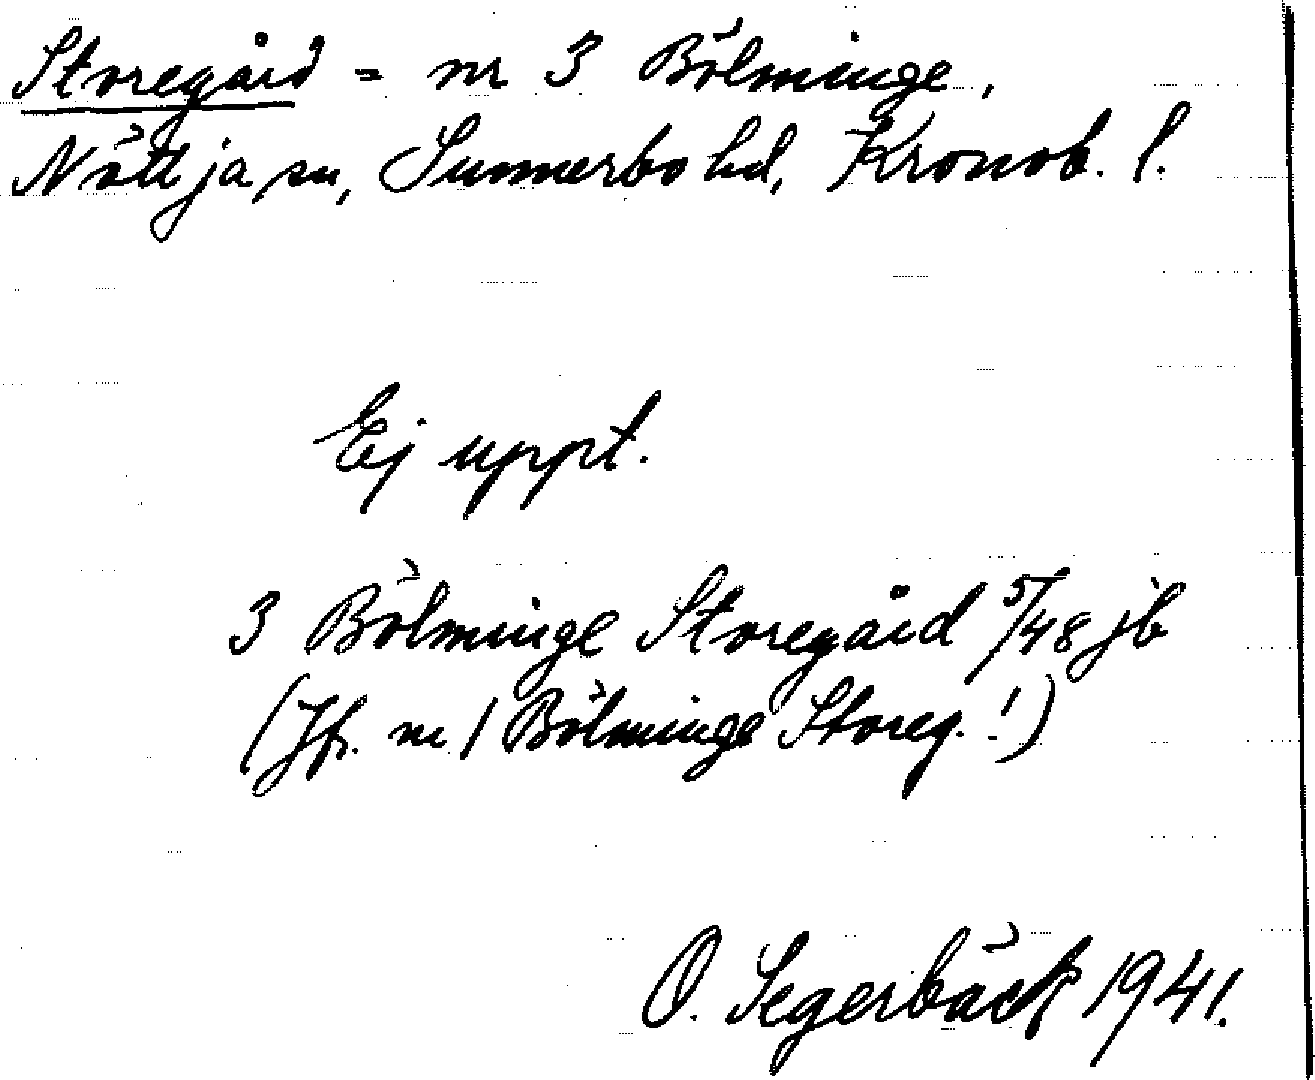 Storegård = nr 3 Bölminge,
Nöttja sn, Sunnerbo hd, Kronob. l.
Ej uppt.
3 Bölminge Storegård 5/48 jb
(Jfr. nr 1 Bölminge Storeg.!)
O. Segerbäck 1941.